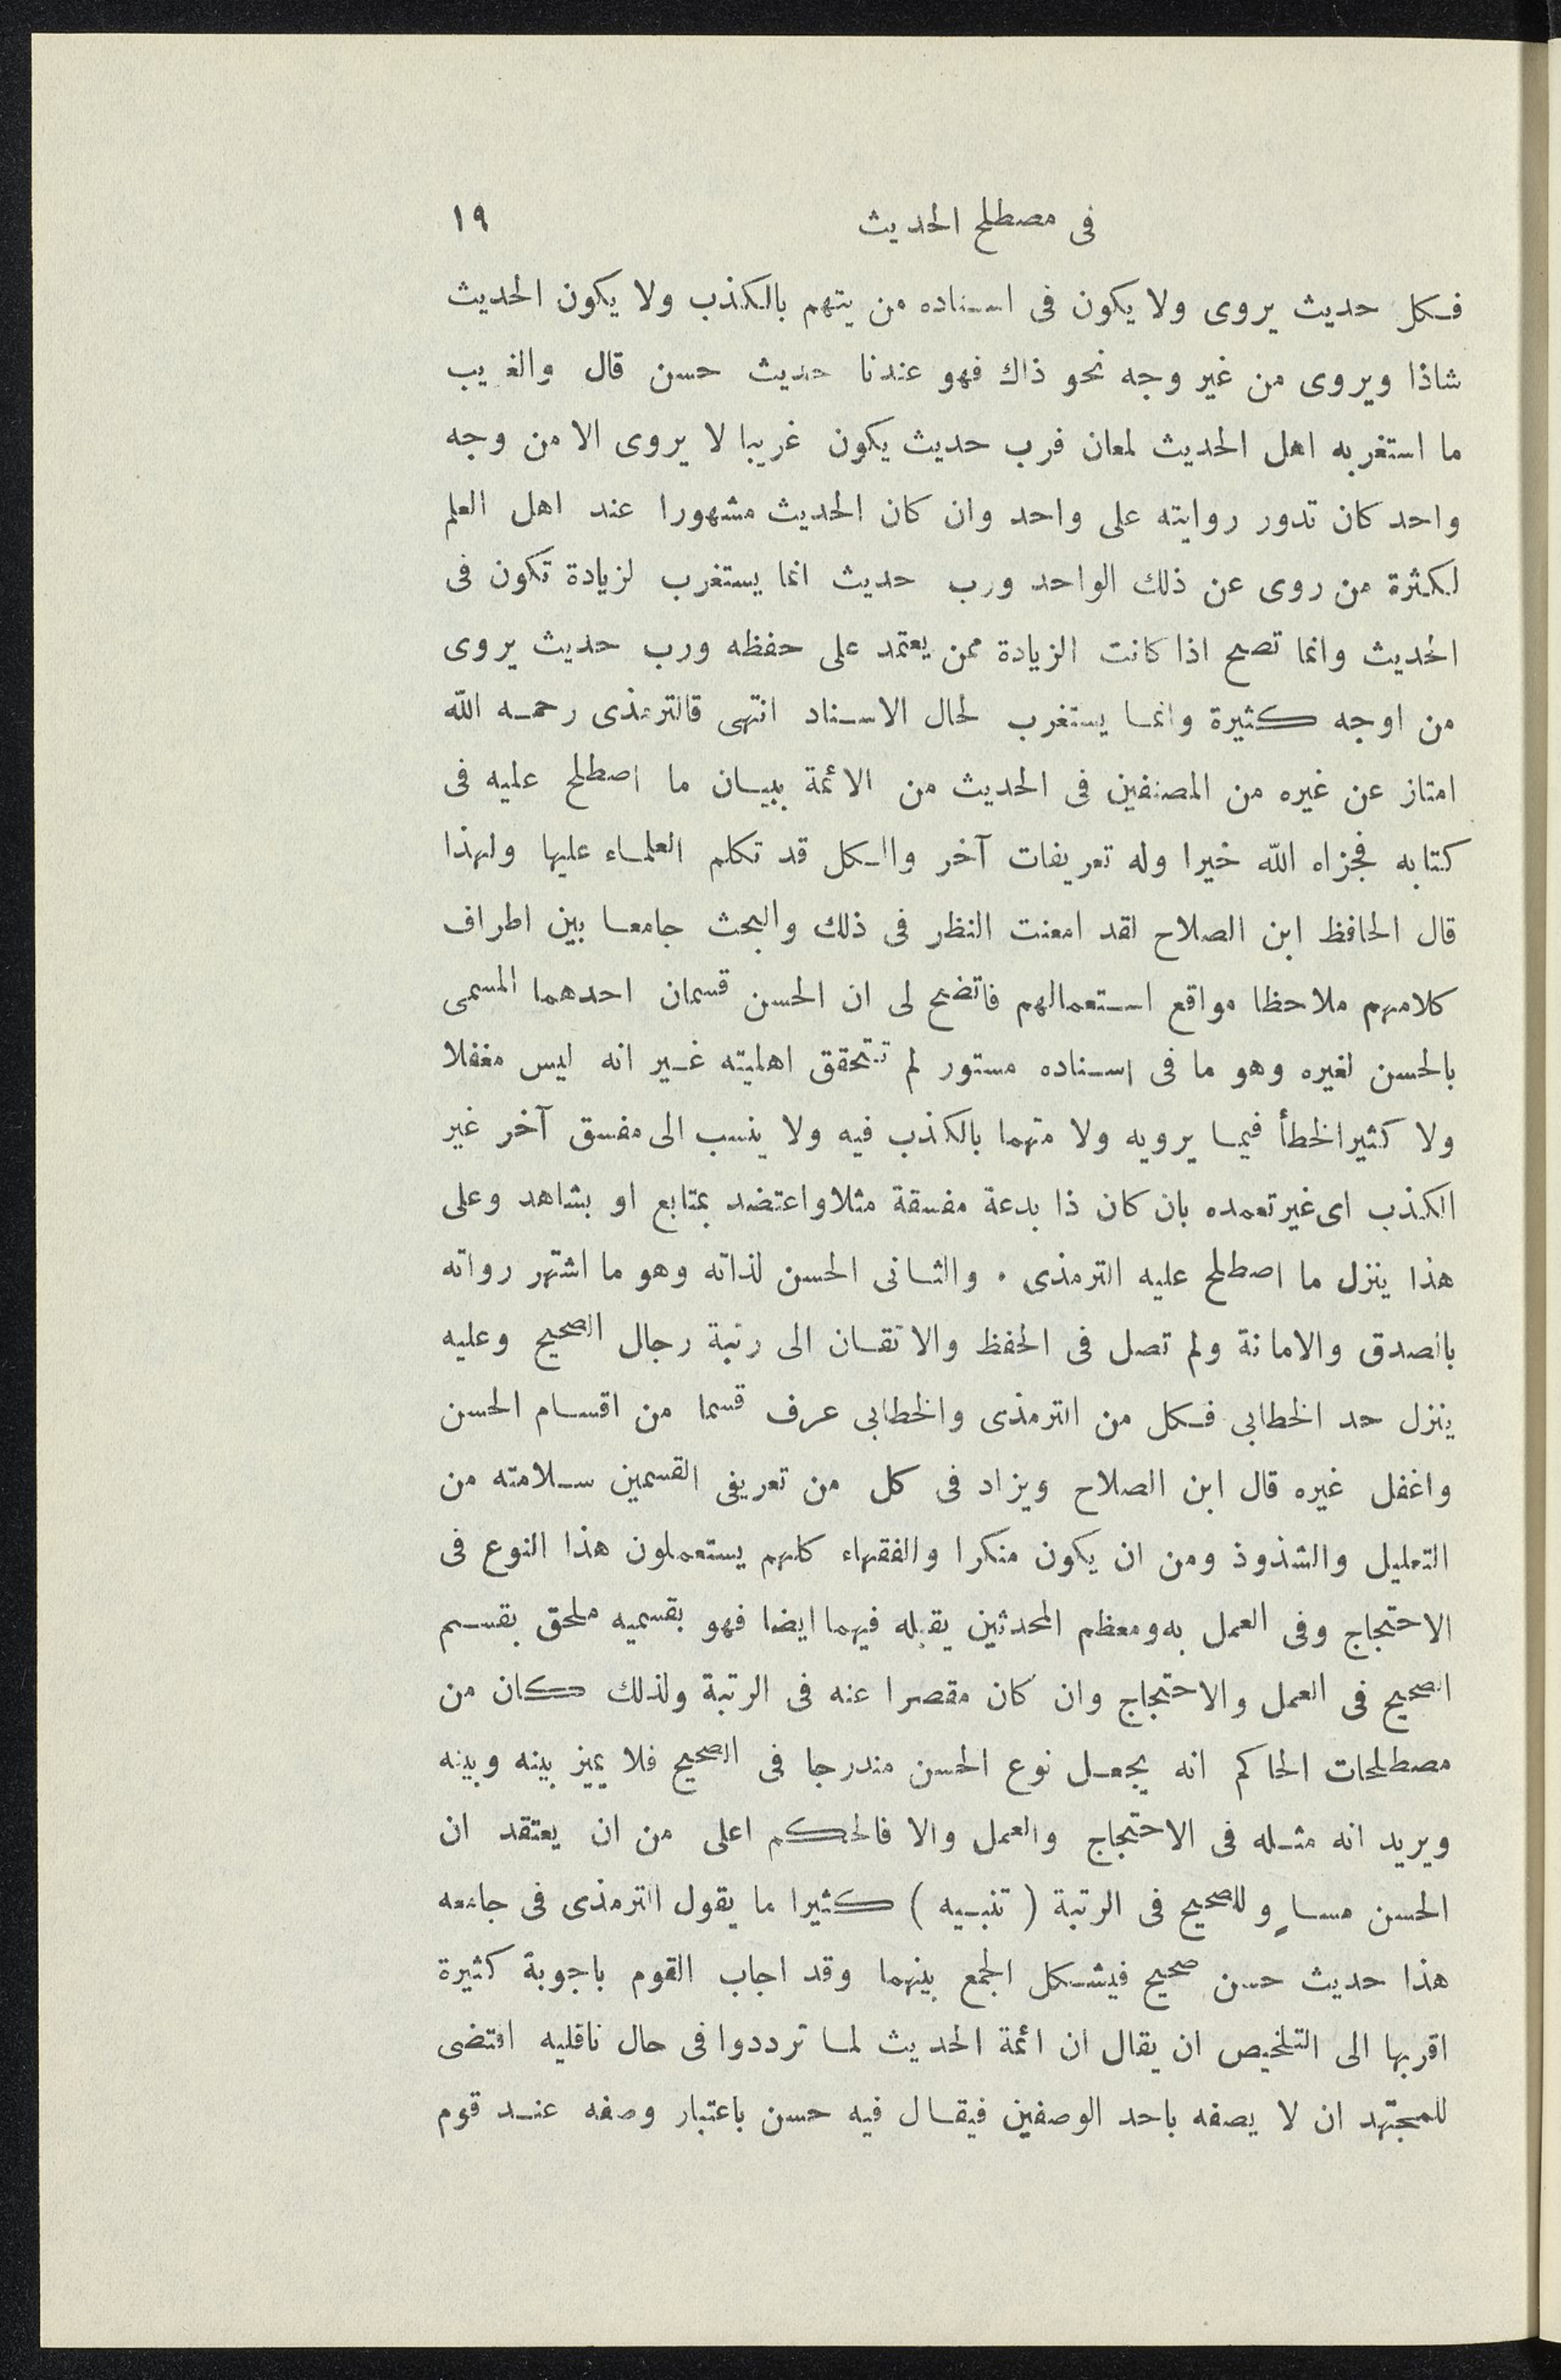 فى مصطلح الحديث ١٩
فكل حديث يروى ولا يكون فى اسناده من يتهم بالكذب ولا يكون الحديث
شاذا ويروى من غير وجه نحو ذاك فهو عندنا حديث حسن قال والغريب
ما استغربه اهل الحديث لمعان فرب حديث يكون غريبا لا يروى الا من وجه
واحد كان تدور روايته على واحد وان كان الحديث مشهورا عند اهل العلم
لكثرة من روى عن ذلك الواحد ورب حديث انما يستغرب لزيادة تكون فى
الحديث وانما تصح اذا كانت الزيادة ممن يعتمد على حفظه ورب حديث يروى
من اوجه كثيرة وانما يستغرب لحال الاسناد انتهى قالترمذى رحمه الله
امتاز عن غيره من المصنفين فى الحديث من الائمة ببيان ما اصطلح عليه فى
كتابه فجزاه الله خيرا وله تعريفات آخر والكل قد تكلم العلماء عليها ولهذا
قال الحافظ ابن الصلاح لقد امعنت النظر فى ذلك والبحث جامعا بين اطراف
كلامهم ملاحظا مواقع استعمالهم فاتضح لى ان الحسن قسمان احدهما المسمى
بالحسن لغيره وهو ما فى اسناده مستور لم تتحقق اهليته غير انه ليس مغفلا
ولا كثير الخطأ فيما يرويه ولا متهما بالكذب فيه ولا ينسب الى مفسق آخر غير
الكذب اى غير تعمده بان كان ذا بدعة مفسقة مثلا واعتضد بمتابع او بشاهد وعلى
هذا ينزل ما اصطلح عليه الترمذى . والثانى الحسن لذاته وهو ما اشتهر رواته
بالصدق والامانة ولم تصل فى الحفظ والاتقان الى رتبة رجال الصحيح وعليه
ينزل حد الخطابى فكل من الترمذى والخطابى عرف قسما من اقسام الحسن
واغفل غيره قال ابن الصلاح ويزاد فى كل من تعريفى القسمين سلامته من
التعليل والشذوذ ومن ان يكون منكرا والفقهاء كلهم يستعملون هذا النوع فى
الاحتجاج وفى العمل به ومعظم المحدثين يقبله فيهما ايضا فهو بقسميه ملحق بقسم
الصحيح فى العمل والاحتجاج وان كان مقصرا عنه فى الرتبة ولذلك كان من
مصطلحات الحاكم انه يجعل نوع الحسن مندرجا فى الصحيح فلا يميز بينه وبينه
ويريد انه مثله فى الاحتجاج والعمل والا فالحكم اعلى من ان يعتقد ان
الحسن مساوٍ للصحيح فى الرتبة ( تنبيه ) كثيرا ما يقول الترمذى فى جامعه
هذا حديث حسن صحيح فيشكل الجمع بينهما وقد اجاب القوم باجوبة كثيرة
اقربها الى التلخيص ان يقال ان ائمة الحديث لما ترددوا فى حال ناقليه اقتضى
للمجتهد ان لا يصفه باحد الوصفين فيقال فيه حسن باعتبار وصفه عند قوم